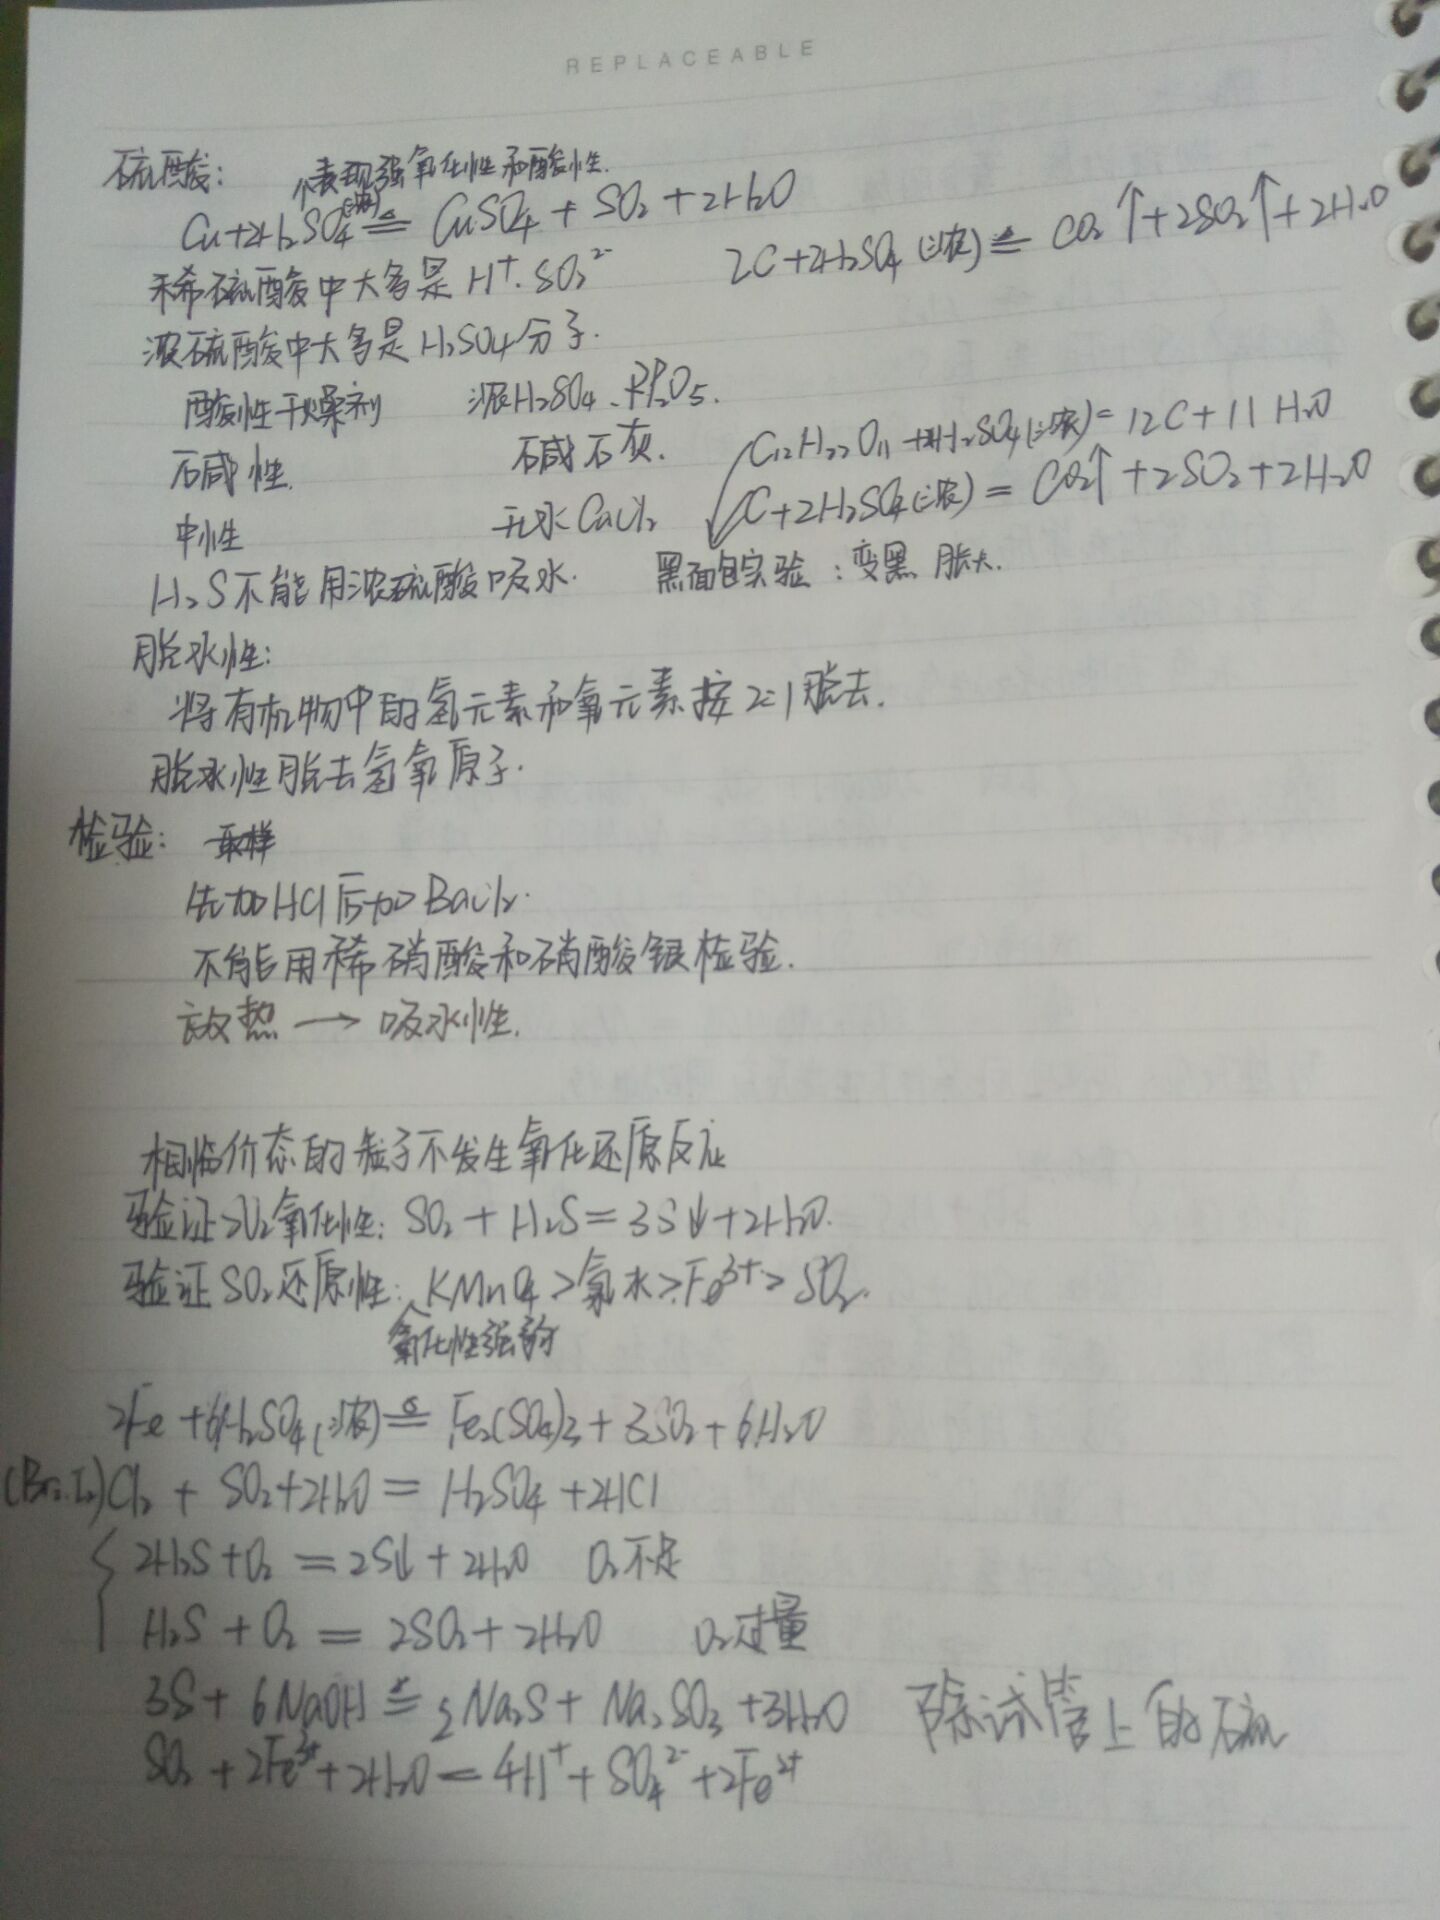 REPLACEABLE
硫酸: 表现强氧化性和酸性.
Cu+2H₂SO₄(浓)≜CuSO₄+SO₂+2H₂O
2C+2H₂SO₄(浓)≜CO₂↑+2SO₂↑+2H₂O
稀硫酸中大多是H⁺.SO₂²⁻
浓硫酸中大多是H₂SO4分子.
酸性干燥剂 浓H₂SO4、P₂O5.
碱性. 碱石灰.
C₁₂H₂₂O₁₁+H₂SO₄(浓)=12C+11H₂O
中性 无水CaCl₂
C+2H₂SO₄(浓)=CO₂↑+2SO₂+2H₂O
H₂S不能用浓硫酸吸水. 黑面包实验:变黑 胀大.
脱水性:
将有机物中的氢元素和氧元素按2:1脱去.
脱水性脱去氢氧原子.
检验: 取样
先加HCl后加BaCl₂.
不能用稀硝酸和硝酸银检验.
放热→吸水性.
相临价态的粒子不发生氧化还原反应
验证SO₂氧化性:SO₂+H₂S=3S↓+2H₂O.
验证SO₂还原性:KMnO4>氯水>Fe³⁺>SO₂.
氧化性强弱
2Fe+6H₂SO₄(浓)≜Fe₂(SO4)₃+3SO₂+6H₂O
(Br₂.I₂)Cl₂+SO₂+2H₂O=H₂SO4+2HCl
2H₂S+O₂=2S↓+2H₂O O₂不足
H₂S+O₂=2SO₂+2H₂O O₂过量
3S+6NaOH≜2Na₂S+Na₂SO₃+3H₂O 除试管上的硫
SO₂+2Fe³⁺+2H₂O=4H⁺+SO₄²⁻+2Fe²⁺